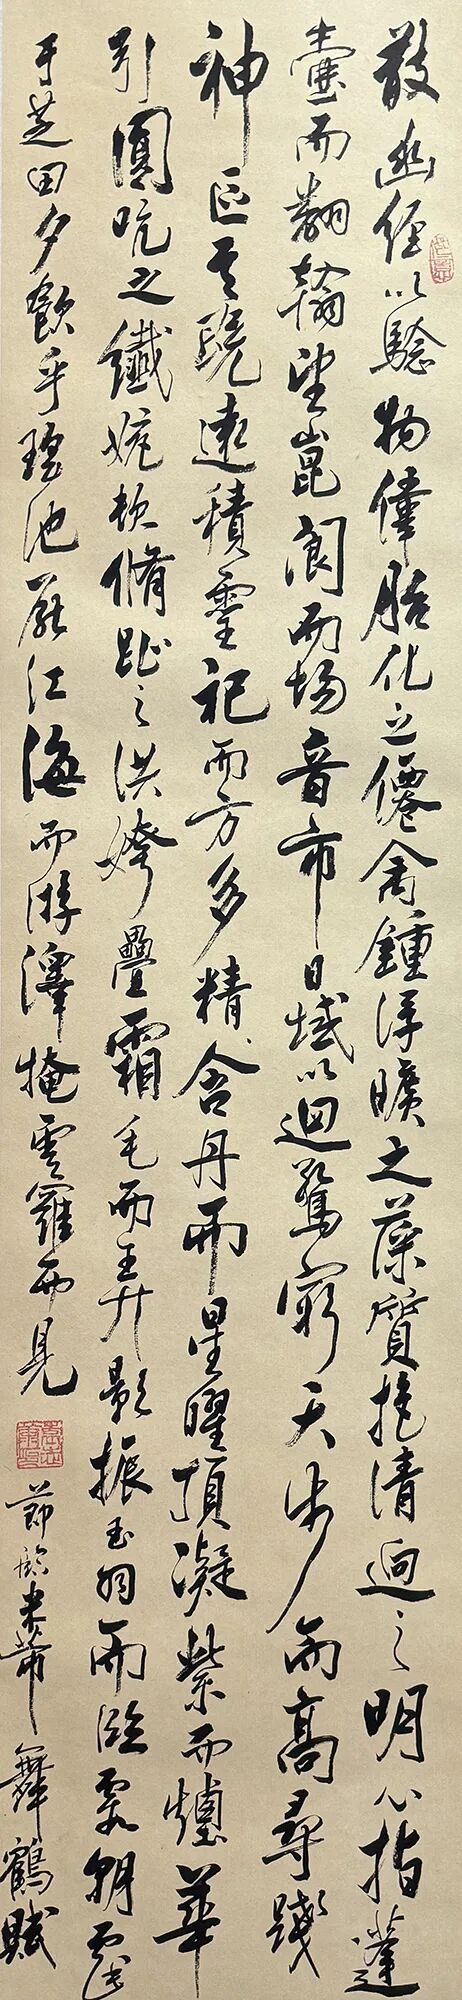 散幽經以驗物偉胎化之僊禽鍾浮曠之藻質抱清迥之明心指蓬
壺而翻翰望崑閬而揚音帀日域以迴騖窮天步而高尋踐
神區其既遠積靈祀而方多精含丹而星曜頂凝紫而煙華
引圓吭之纖婉頓脩趾之洪姱疊霜毛而弄影振玉羽而臨霞朝戲
于芝田夕飲乎瑤池厭江海而游澤掩雲羅而見
節臨米芾舞鶴賦